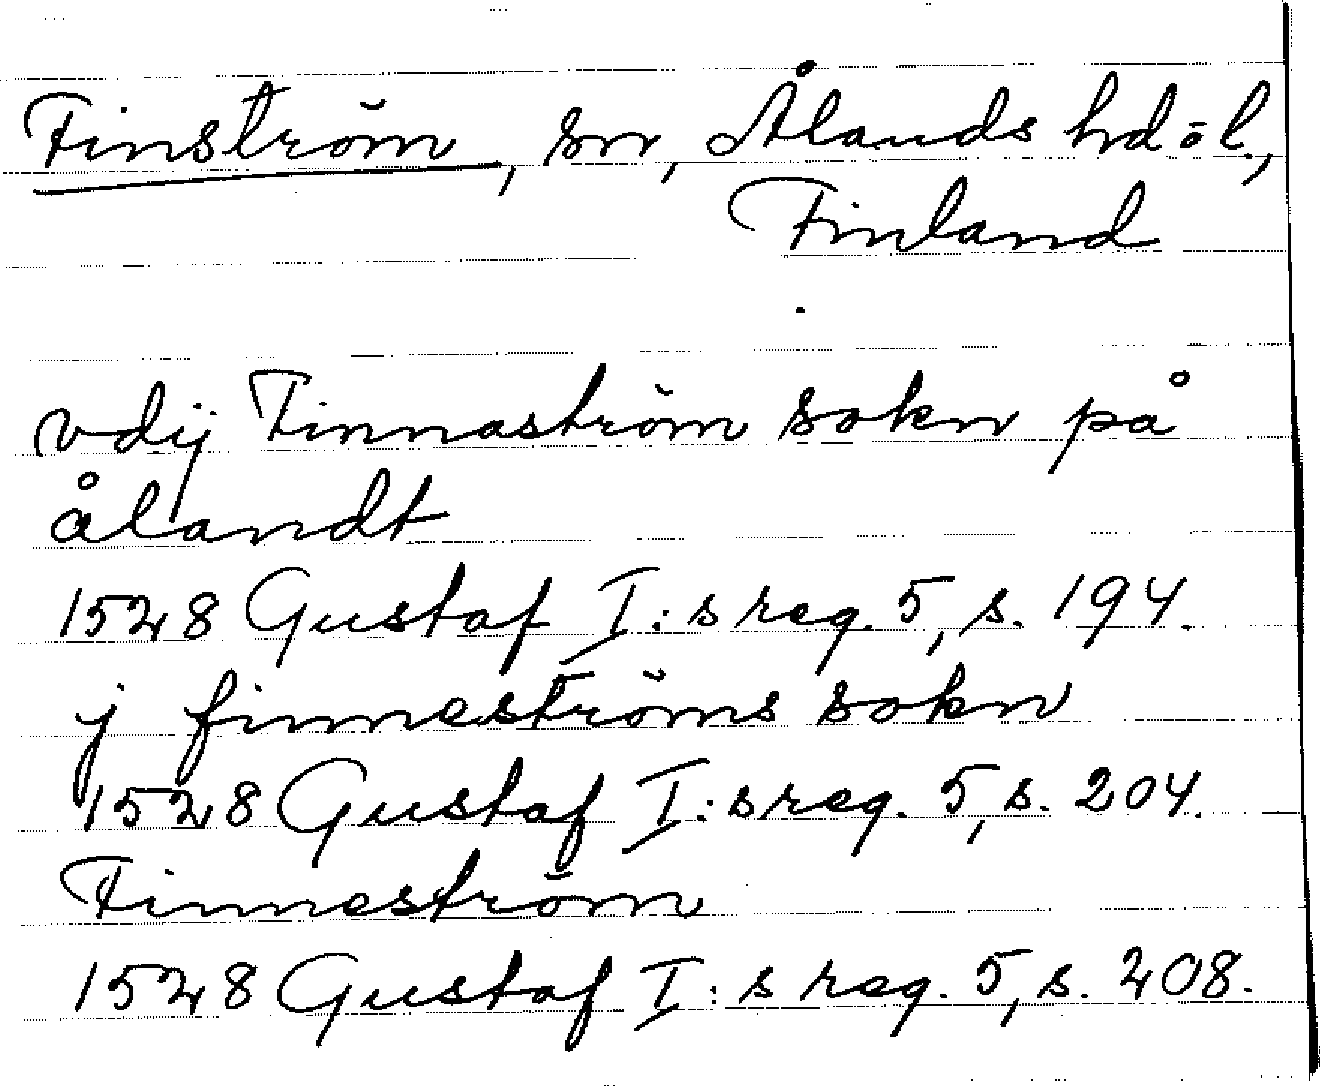 Finström, sn, Ålands hd ö l.,
Finland
vdij Finnaström sokn på
ålandt
1528 Gustaf I:s reg. 5, s. 194.
j finneströms sokn
1528 Gustaf I:s reg. 5, s. 204.
Finneström
1528 Gustaf I:s reg. 5, s. 208.